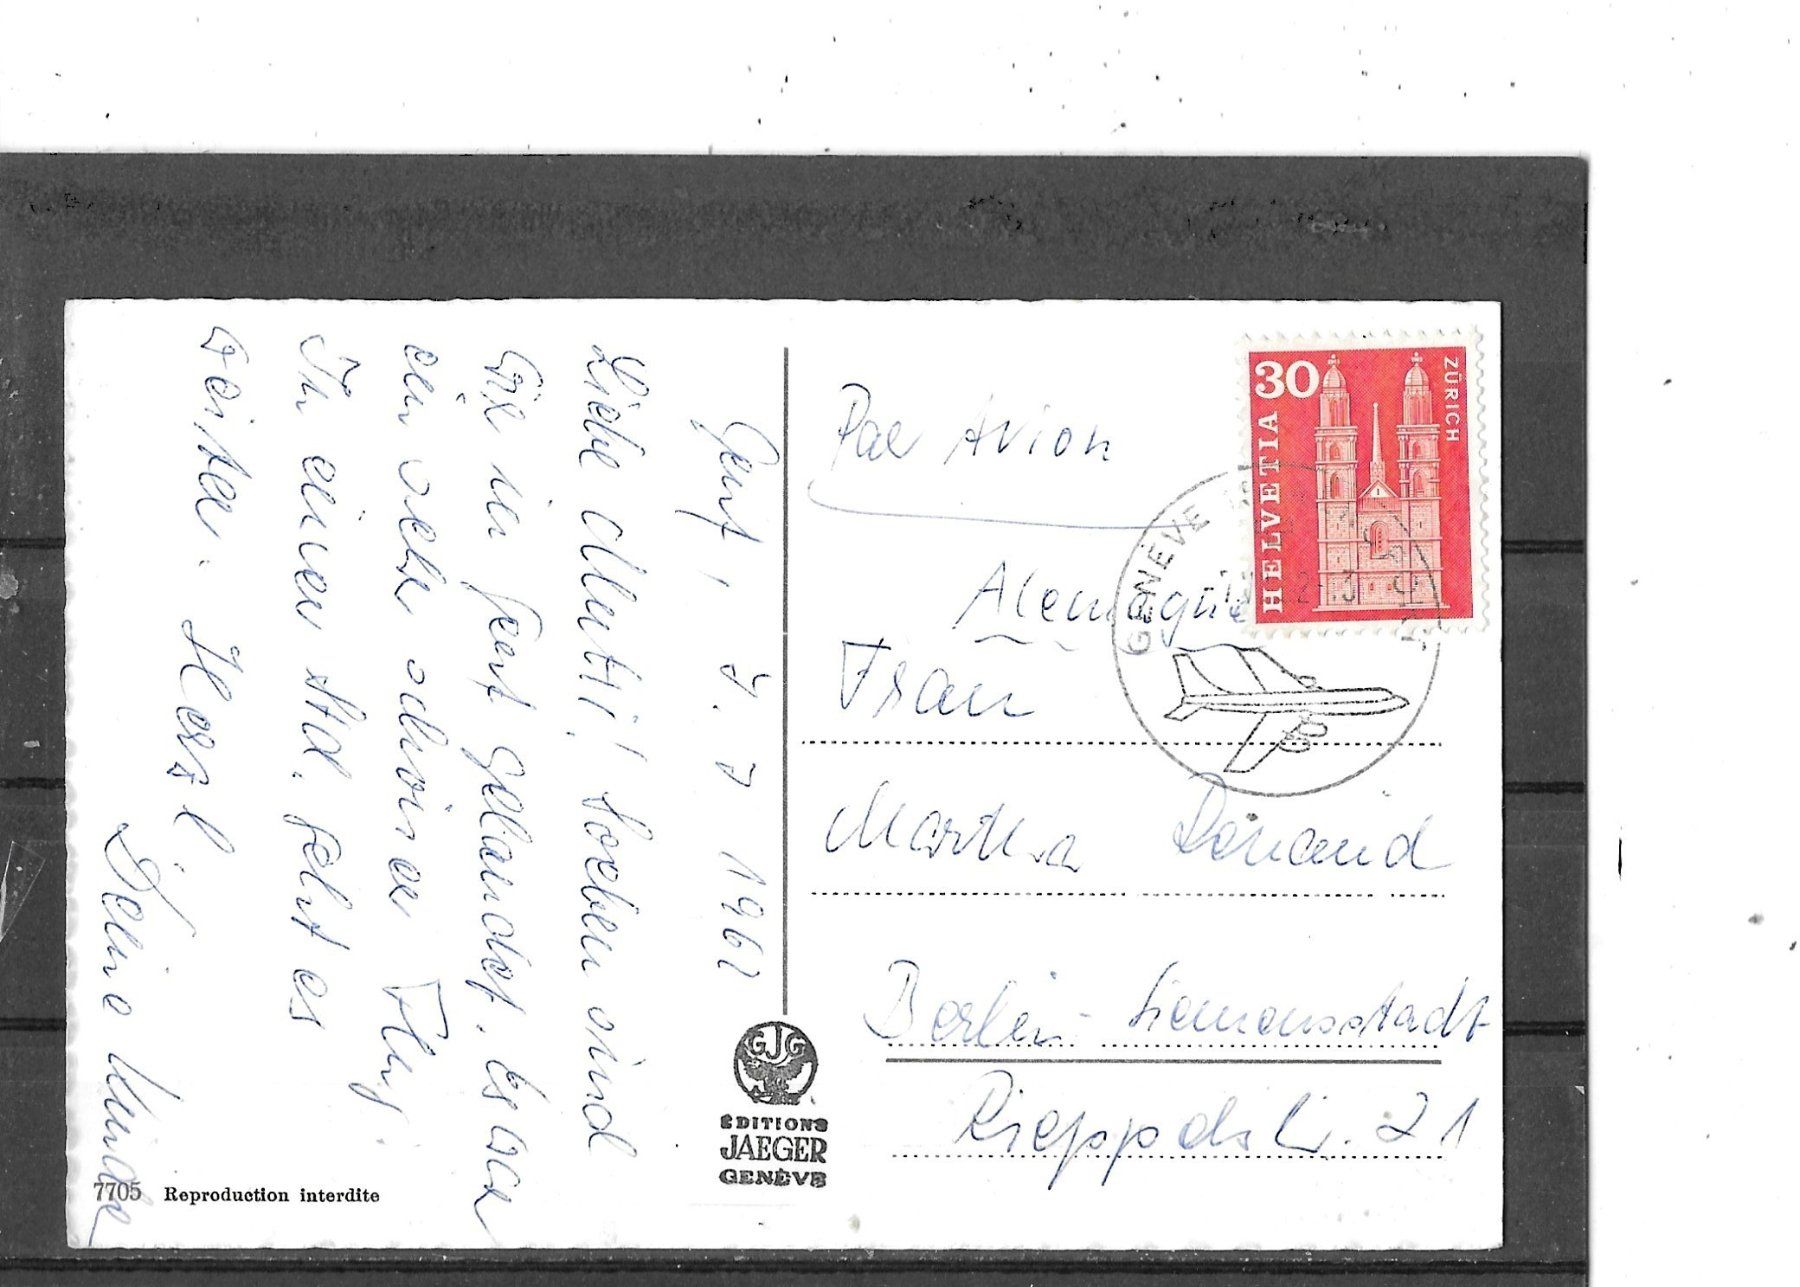 Genf, 1. 1. 1962
Liebe Mutti! Soeben sind
wir in Genf gelandet. Es war
ein sehr schöner Flug.
In einer Std. geht es
weiter. Herzl.
Deine
Par Avion
Alemagne
Frau
Martha
Berlin-Siemensstadt
21
30
HELVETIA
ZÜRICH
GENÈVE
GJG
EDITIONS
JAEGER
GENÈVE
7705 Reproduction interdite